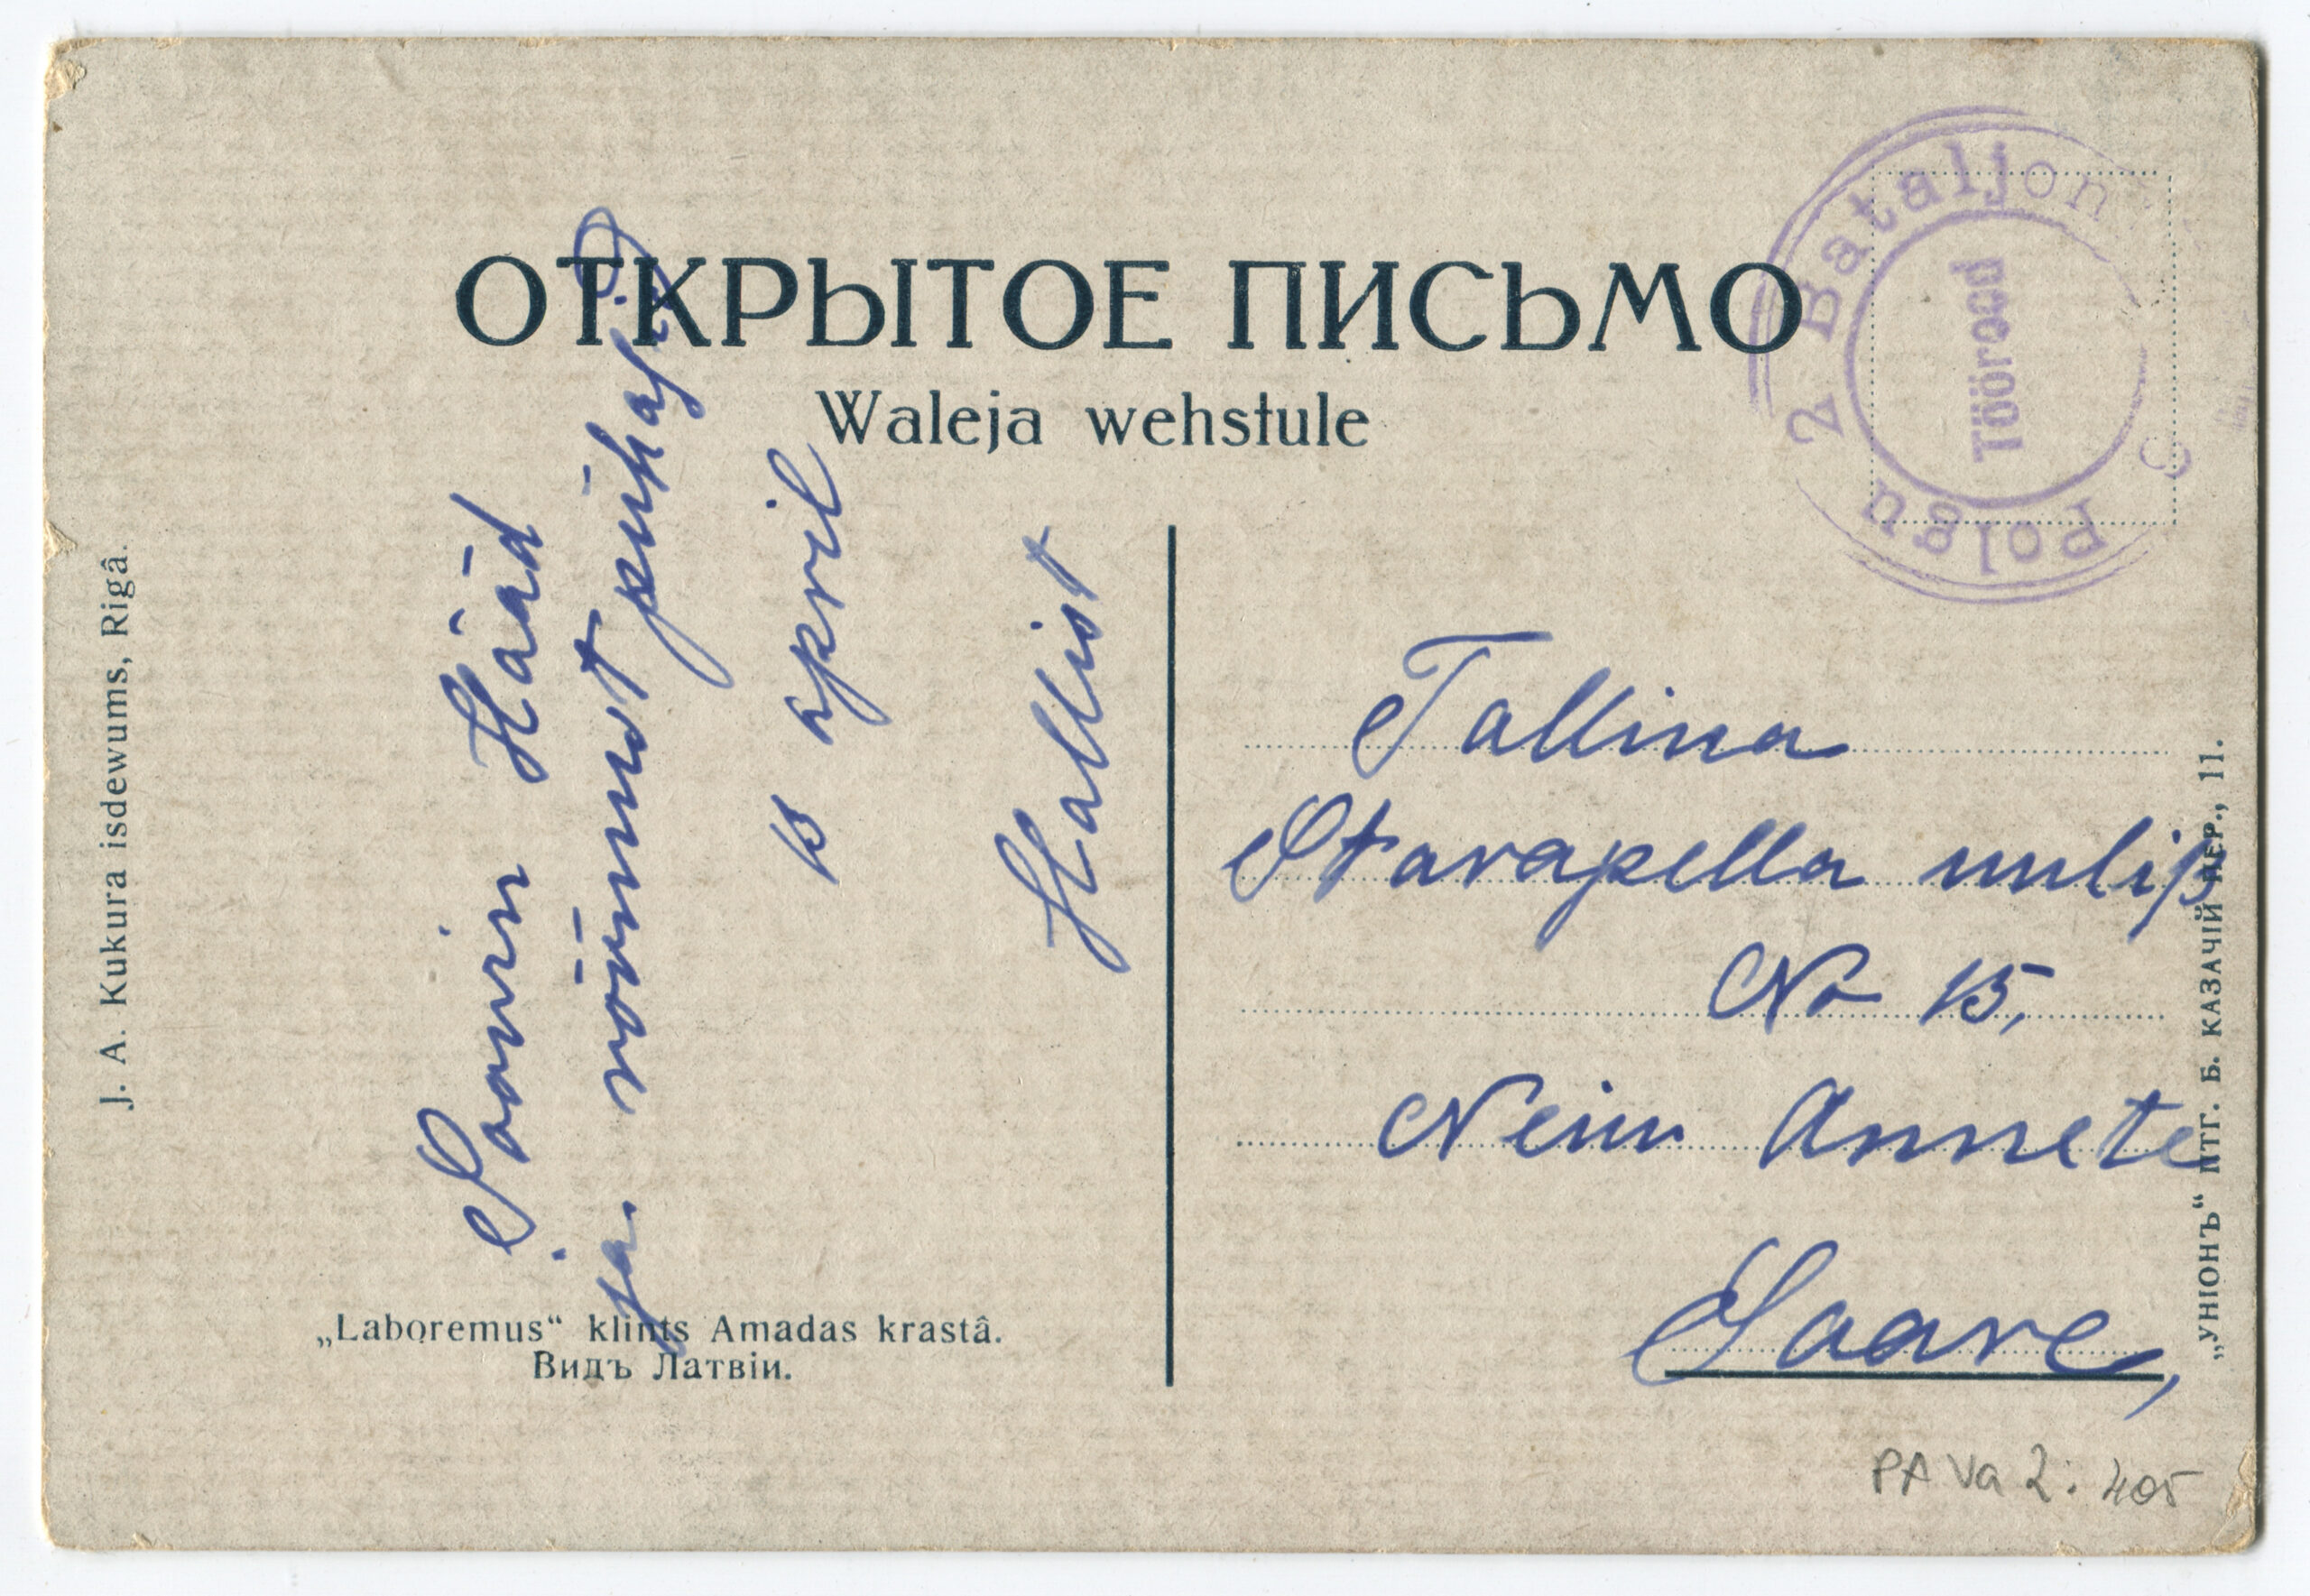 ОТКРЫТОЕ ПИСЬМО
Waleja wehstule
2 Bataljon
polgu
Töörood
J. A. Kukura isdewums, Rigâ.
Soovin Hääd
ja rõõmust pühasid
15 april
Hallist
Tallina
Starapella uulip
No 15,
Neiu Annete
Saare,
„Laboremus“ klints Amadas krastâ.
Видъ Латвіи.
„УНІОНЪ“ ПТГ. Б. КАЗАЧІЙ ПЕР., 11.
PA Va 2: 405